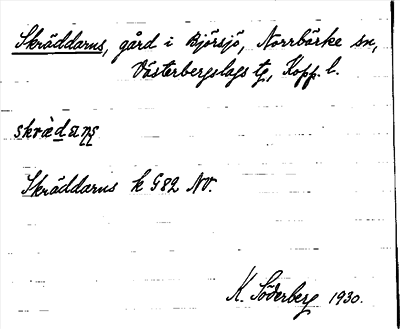 Skräddarns, gård i Björsjö, Norrbärke sn,
Västerbergslags tg, Kopp. l.
skrä̀daṇṣ
Skräddarns k G82 NV.
K. Söderberg 1930.